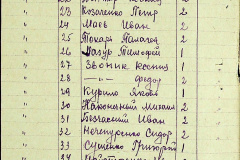 23 Козаченко Петр 2
24 Маяк Иван 2
25 Токарь Палагея 2
26 Мазур Тимофей
27 Звоник Ксения 1
28 —"— Федор 2
29 Курило Яков 1
30 Наконечный Михаил 2
31 Иван 2
32 Нечипуренко Сидор 2
33 Сущенко Григорий 1
34